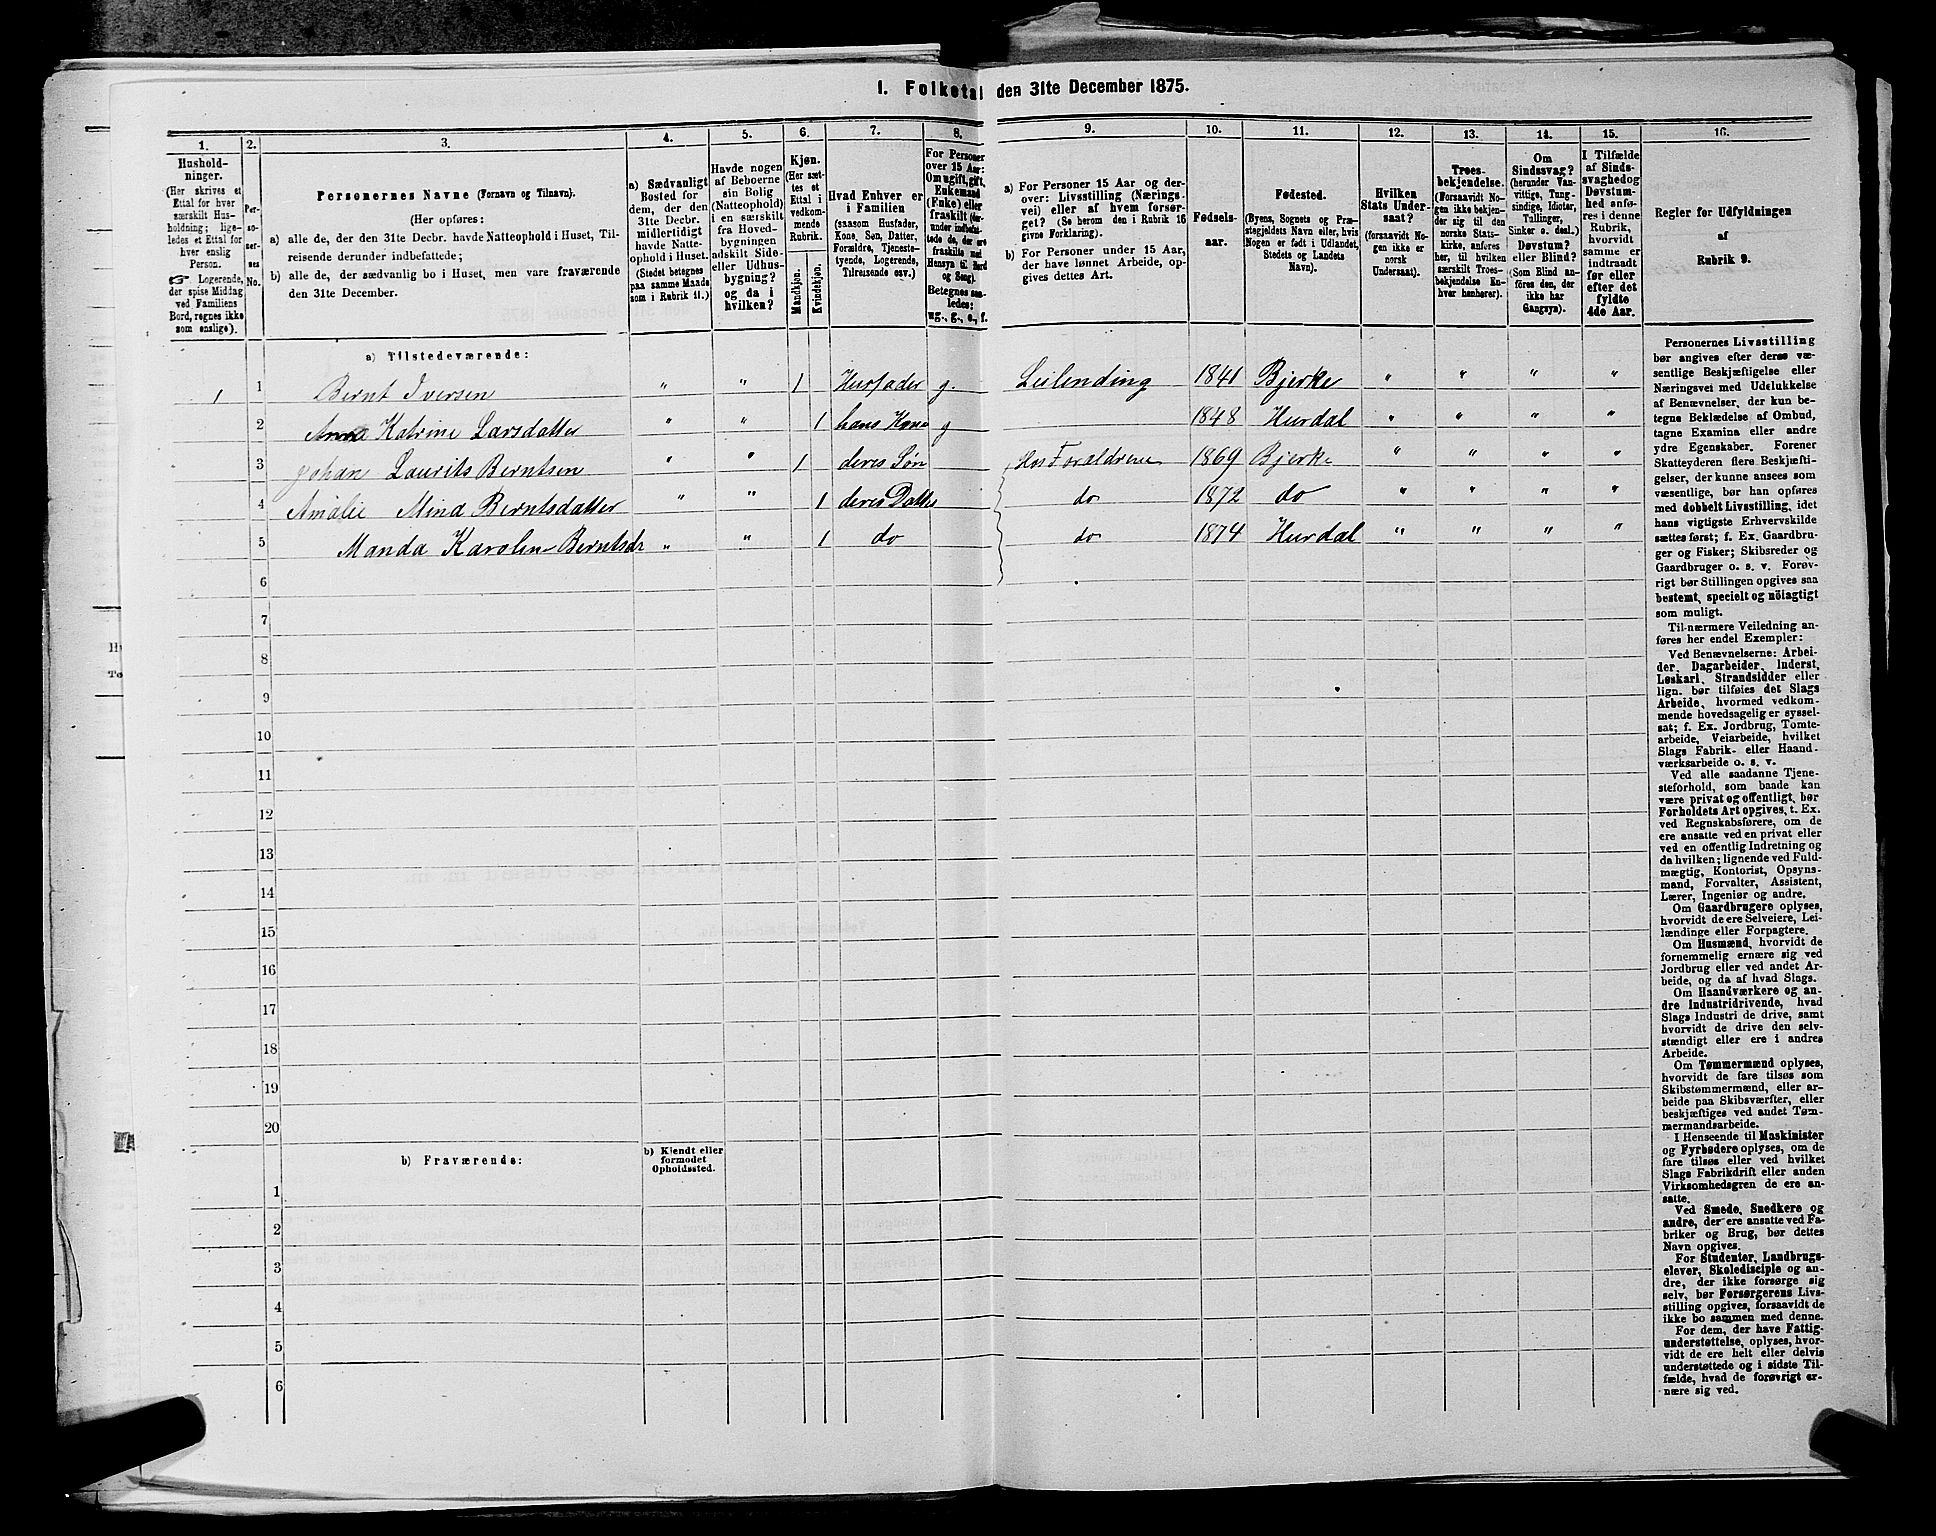 1. Folketal den 31te December 1875.
1.
2.
3.
4.
5.
6.
7.
8.
9.
10.
11.
12.
13.
14.
15.
16.
Hushold-
ninger.
(Her skrives et
Ettal for hver
særskilt Hus-
holdning; lige-
ledes et Ettal for
hver enslig
Person.
☞ Logerende,
der spise Middag
ved Familiens
Bord, regnes ikke
som enslige).
Per-
so-
ner-
nes
No.
Personernes Navne (Fornavn og Tilnavn).
(Her opføres:
a) alle de, der den 31te Decbr. havde Natteophold i Huset, Til-
reisende derunder indbefattede;
b) alle de, der sædvanlig bo i Huset, men vare fraværende
den 31te December.
a) Sædvanligt
Bosted for
dem, der den
31te Decbr.
midlertidigt
havde Natte-
ophold i Huset.
(Stedet betegnes
paa samme Maade
som i Rubrik 11.)
Havde nogen
af Beboerne
sin Bolig
(Natteophold)
i en særskilt
fra Hoved-
bygningen
adskilt Side-
eller Udhus-
bygning?
og da i
hvilken?
Kjøn.
(Her sæt-
tes et
Ettal i
vedkom-
mende
Rubrik.
Mandkjøn.
Kvindekjøn.
Hvad Enhver er
i Familien
(saasom Husfader,
Kone, Søn, Datter,
Forældre, Tjeneste-
tyende, Logerende,
Tilreisende osv.)
For Personer
over 15 Aar:
Om ugift, gift,
Enkemand
(Enke) eller
fraskilt (der-
under indbefat-
tede de, der ere
fraskilte med
Hensyn til Bord
og Seng).
Betegnes saa-
ledes:
ug., g., e., f.
a) For Personer 15 Aar og der-
over: Livsstilling (Nærings-
vei) eller af hvem forsør-
get? (Se herom den i Rubrik 16
givne Forklaring).
b) For Personer under 15 Aar,
der have lønnet Arbeide, op-
gives dettes Art.
Fødsels-
aar.
Fødested.
(Byens, Sognets og Præ-
stegjeldets Navn eller, hvis
Nogen er født i Udlandet,
Stedets og Landets
Navn).
Hvilken
Stats Under-
saat?
(forsaavidt No-
gen ikke er
norsk
Undersaat).
Troes-
bekjendelse.
(Forsaavidt No-
gen ikke bekjen-
der sig til den
norske Stats-
kirke, anføres
her, til hvilken
særskilt Troes-
bekjendelse En-
hver henhører).
Om
Sindssvag?
(herunder Van-
vittige, Tung-
sindige, Idioter,
Tullinger,
Sinker o. desl.)
Døvstum?
eller Blind?
(Som Blind an-
føres den, der
ikke har
Gangsyn).
I Tilfælde
af Sinds-
svaghed og
Døvstum-
hed anfø-
res i denne
Rubrik,
hvorvidt
samme er
indtraadt
før eller
efter det
fyldte
4de Aar.
Regler for Udfyldningen
af
Rubrik 9.
a) Tilstedeværende:
1 1 Bernt Iversen " " 1 Husfader g. Leilending 1841 Bjerke " " " "
2 Anna Katrine Larsdatter " " 1 hans Kone g 1848 Hurdal " " " "
3 Johan Laurits Berntsen " " 1 deres Søn Hos Foraldrene 1869 Bjerke " " " "
4 Amalie Mina Berntsdatter " " 1 deres Datter do 1872 do " " " "
5 Manda Karolin Berntsdr " " 1 do do 1874 Hurdal " " " "
6
7
8
9
10
11
12
13
14
15
16
17
18
19
20
b) Fraværende:
b) Kjendt eller
formodet
Opholdssted.
1
2
3
4
5
6
Personernes Livsstilling
bør angives efter deres væ-
sentlige Beskjæftigelse eller
Næringsvei med Udelukkelse
af Benævnelser, der kun be-
tegne Beklædelse af Ombud,
tagne Examina eller andre
ydre Egenskaber. Forener
Skatteyderen flere Beskjæfti-
gelser, der kunne ansees som
væsentlige, bør han opføres
med dobbelt Livsstilling, idet
hans vigtigste Erhvervskilde
sættes først; f. Ex. Gaardbru-
ger og Fisker; Skibsreder og
Gaardbruger o. s. v. Forøv-
rigt bør Stillingen opgives saa
bestemt, specielt og nöiagtigt
som muligt.
Til nærmere Veiledning an-
føres her endel Exempler:
Ved Benævnelserne: Arbei-
der, Dagarbeider, Inderst,
Løskarl, Strandsidder eller
lign. bør tilføies det Slags
Arbeide, hvormed vedkom-
mende hovedsagelig er syssel-
sat; f. Ex. Jordbrug, Tomte-
arbeide, Veiarbeide, hvilket
Slags Fabrik- eller Haand-
værksarbeide o. s. v.
Ved alle saadanne Tjene-
steforhold, som baade kan
være privat og offentligt, bør
Forholdets Art opgives, t. Ex.
ved Regnskabsførere, om de
ere ansatte ved en privat eller
ved en offentlig Indretning og
da hvilken; lignende ved Fuld-
mægtig, Kontorist, Opsyns-
mand, Forvalter, Assistent,
Lærer, Ingeniør og andre.
Om Gaardbrugere oplyses,
hvorvidt de ere Selveiere, Lei-
lændinge eller Forpagtere.
Om Husmænd, hvorvidt de
fornemmelig ernære sig ved
Jordbrug eller ved andet Ar-
beide, og da af hvad Slags.
Om Haandværkere og an-
dre Industridrivende, hvad
Slags Industri de drive, samt
hvorvidt de drive den selv-
stændigt eller ere i andres
Arbeide.
Om Tømmermænd oplyses,
hvorvidt de fare tilsøs som
Skibstømmermænd, eller ar-
beide paa Skibsværfter, eller
beskjæftiges ved andet Tøm-
mermandsarbeide.
I Henseende til Maskinister
og Fyrbødere oplyses, om de
fare tilsøs eller ved hvilket
Slags Fabrikdrift eller anden
Virksomhedsgren de ere an-
satte.
Ved Smede, Snedkere og
andre, der ere ansatte ved Fa-
briker og Brug, bør dettes
Navn opgives.
For Studenter, Landbrugs-
elever, Skoledisciple og an-
dre, der ikke forsørge sig
selv, bør Forsørgerens Livs-
stilling opgives, forsaavidt de
ikke bo sammen med denne.
For dem, der have Fattig-
understøttelse, oplyses, hvor-
vidt de ere helt eller delvis
understøttede og i sidste Til-
fælde, hvad de forøvrigt er-
nære sig ved.